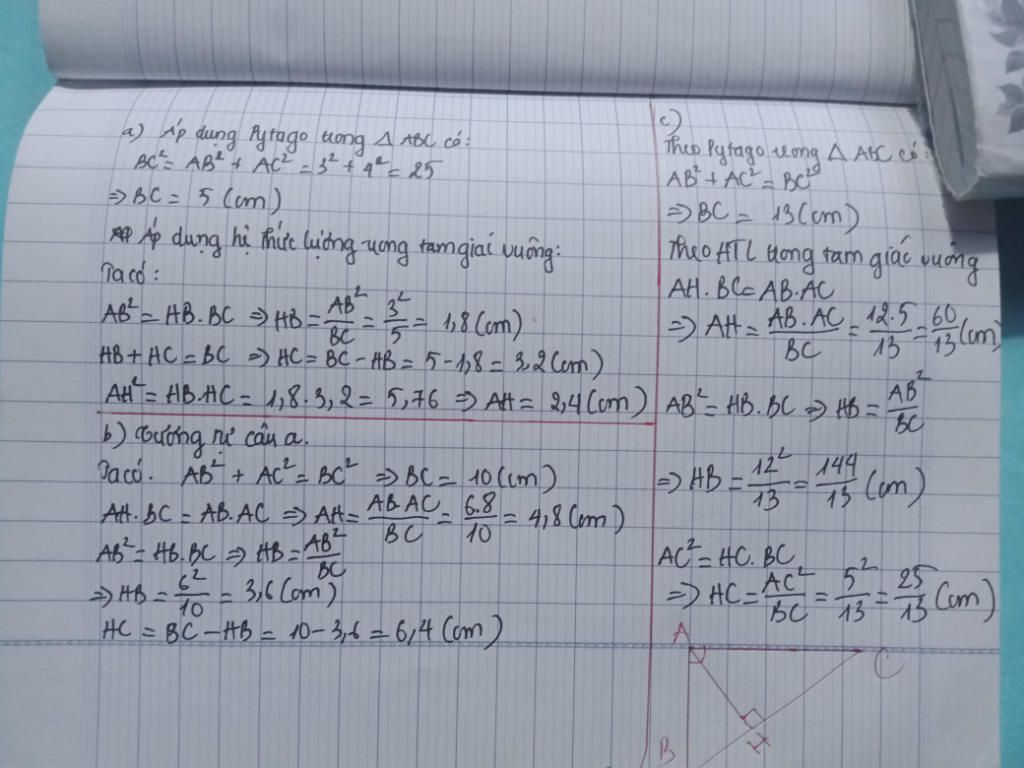 a) Áp dụng Pytago trong Δ ABC có:
BC² = AB² + AC² = 3² + 4² = 25
⇒ BC = 5 (cm)
Áp dụng hệ thức lượng trong tam giác vuông:
Ta có:
AB² = HB.BC ⇒ HB = AB²/BC = 3²/5 = 1,8 (cm)
HB + HC = BC ⇒ HC = BC - HB = 5 - 1,8 = 3,2 (cm)
AH² = HB.HC = 1,8.3,2 = 5,76 ⇒ AH = 2,4 (cm)
b) Tương tự câu a.
Ta có. AB² + AC² = BC² ⇒ BC = 10 (cm)
AH.BC = AB.AC ⇒ AH = AB.AC/BC = 6.8/10 = 4,8 (cm)
AB² = HB.BC ⇒ HB = AB²/BC
⇒ HB = 6²/10 = 3,6 (cm)
HC = BC - HB = 10 - 3,6 = 6,4 (cm)
c)
Theo Pytago trong Δ ABC có:
AB² + AC² = BC²
⇒ BC = 13 (cm)
Theo HTL trong tam giác vuông
AH.BC = AB.AC
⇒ AH = AB.AC/BC = 12.5/13 = 60/13 (cm)
AB² = HB.BC ⇒ HB = AB²/BC
⇒ HB = 12²/13 = 144/13 (cm)
AC² = HC.BC
⇒ HC = AC²/BC = 5²/13 = 25/13 (cm)
A
C
H
B